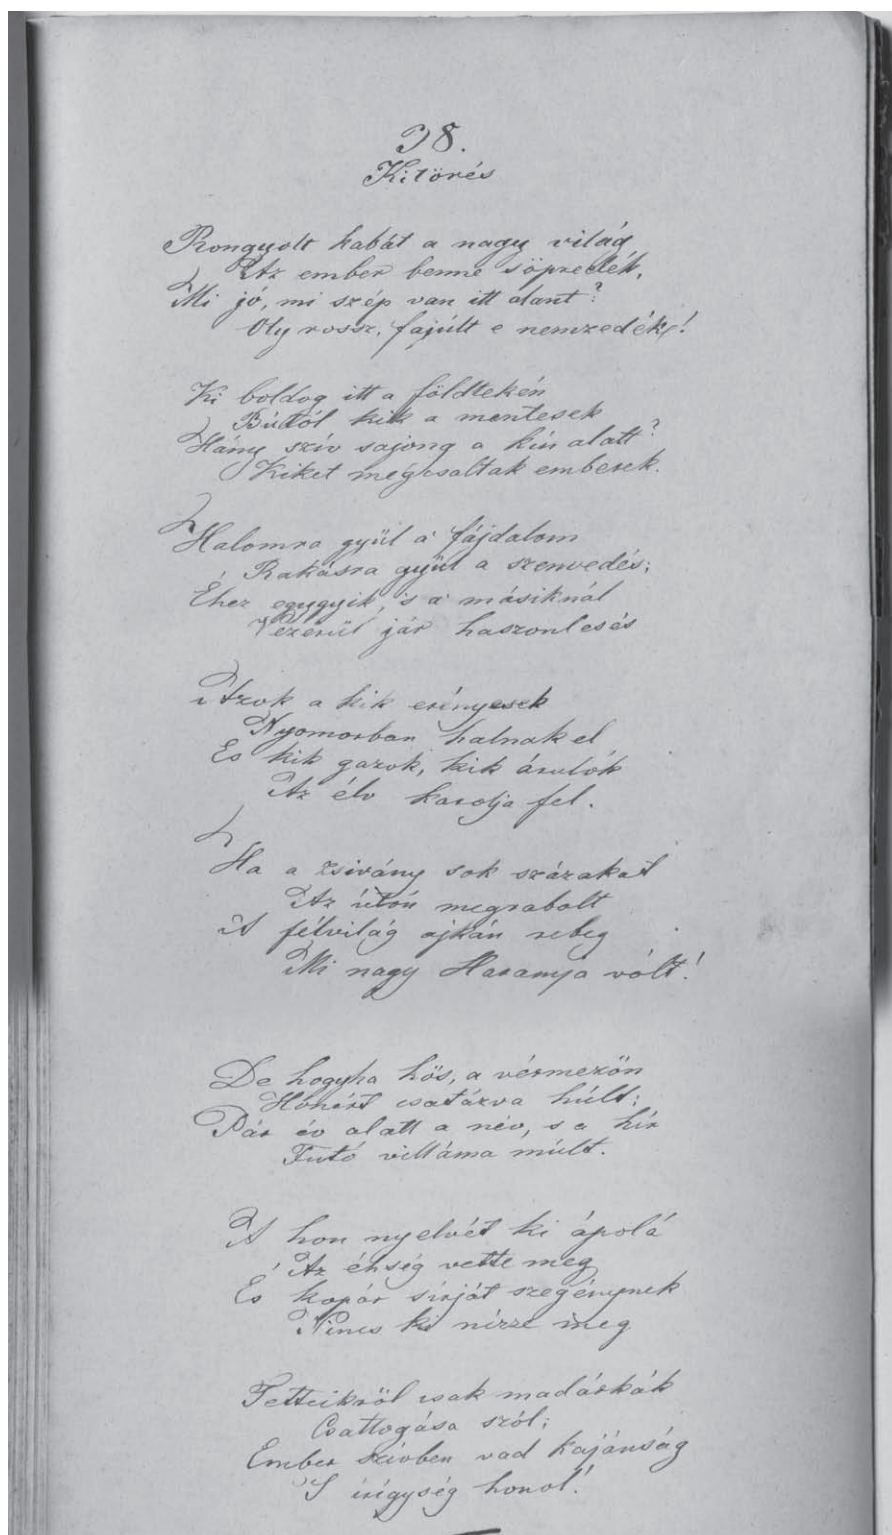 98.
Kitörés
Rongyolt kabát a nagy világ
Az ember benne söpredék,
Mi jó, mi szép van itt alant?
Oly rossz, fajúlt e nemzedék!
Ki boldog itt a földtekén
Bútól kik a mentesek
Hány szív sajong a kín alatt?
Kiket megcsaltak emberek.
Halomra gyül a fájdalom
Rakásra gyül a szenvedés;
Éhez egygyik, 's a másiknál
Vezérül jár haszonlesés
Azok a kik erényesek
Nyomorban halnak el
És kik gazok, kik árulók
Az élv karolja fel.
Ha a zsivány sok százakat
Az úton megrabolt
A félvilág ajkán rebeg
Mi nagy Haramja vólt!
De hogyha hös, a vérmezön
Honért csatázva húlt;
Pár év alatt a név, s a hír
Futó villáma múlt.
A hon nyelvét ki ápolá
Az éhség vette meg
És kopár sírját szegénynek
Nincs ki nézze meg
Tetteikröl csak madárkák
Csattogása szól;
Ember szívben vad kajánság
S irígység honol!